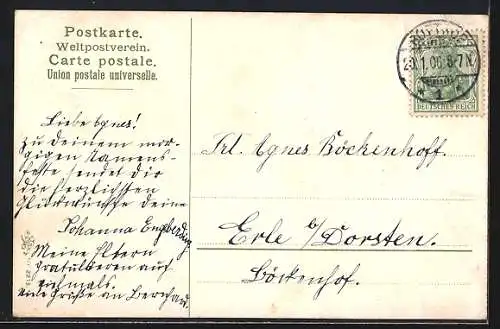 Postkarte.
Weltpostverein.
Carte postale.
Union postale universelle.
DEUTSCHES REICH
20.1.06. 6-7N
Liebe Agnes!
Zu deinem mor-
gigen Namens-
feste sendet dir
die herzlichsten
Glückwünsche deine
Johanna Engberding
Meine Eltern
gratulieren auch
vielmals.
viele Grüße an Bernhard.
Frl. Agnes Böckenhoff.
Erle b/ Dorsten.
Böckenhof.